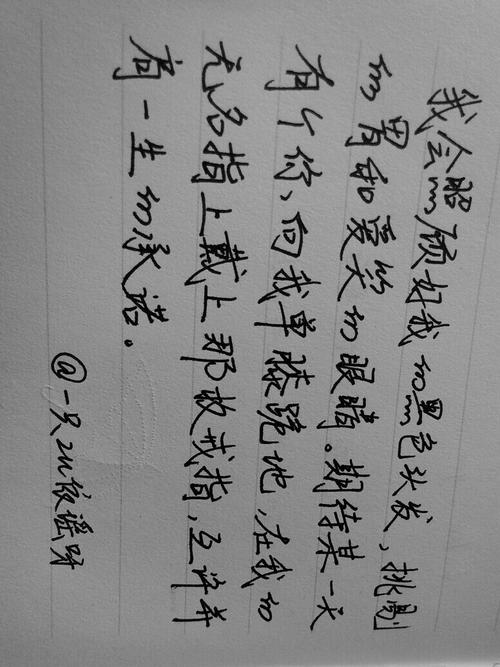 我会照顾好我的黑色头发、挑剔
的胃和爱笑的眼睛。期待某一天
有个你、向我单膝跪地,在我的
无名指上戴上那枚戒指,互许并
肩一生的承诺。
@一只 依谣呀